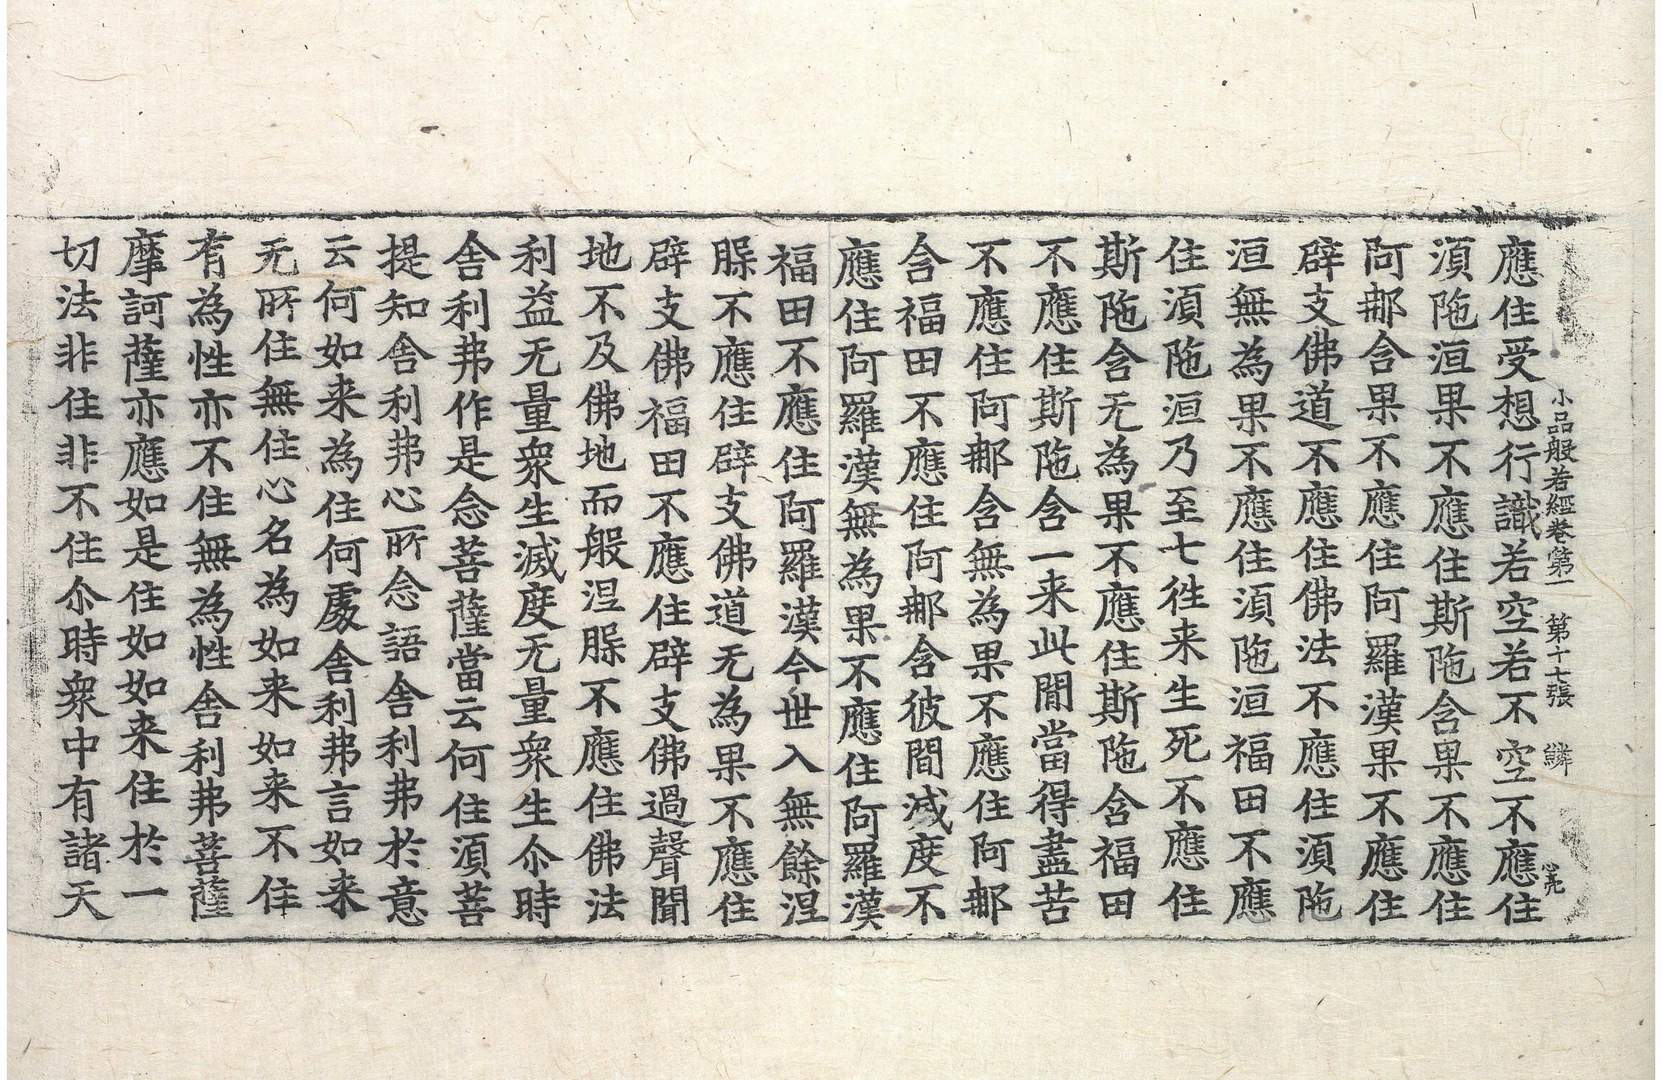 小品般若經卷第一 第十七張 鱗 心亮
應住受想行識若空若不空不應住
湏陁洹果不應住斯陁含果不應住
阿那含果不應住阿羅漢果不應住
辟支佛道不應住佛法不應住湏陁
洹無為果不應住湏陁洹福田不應
住湏陁洹乃至七徃来生死不應住
斯陁含无為果不應住斯陁含福田
不應住斯陁含一来此閒當得盡苦
不應住阿那含無為果不應住阿那
含福田不應住阿那含彼閒滅度不
應住阿羅漢無為果不應住阿羅漢
福田不應住阿羅漢今世入無餘涅
脲不應住辟支佛道无為果不應住
辟支佛福田不應住辟支佛過聲聞
地不及佛地而般涅脲不應住佛法
利益无量衆生滅度无量衆生尒時
舎利弗作是念菩薩當云何住湏菩
提知舎利弗心所念語舎利弗於意
云何如来為住何處舎利弗言如来
无所住無住心名為如来如来不住
有為性亦不住無為性舎利弗菩薩
摩訶薩亦應如是住如如来住於一
切法非住非不住尒時衆中有諸天